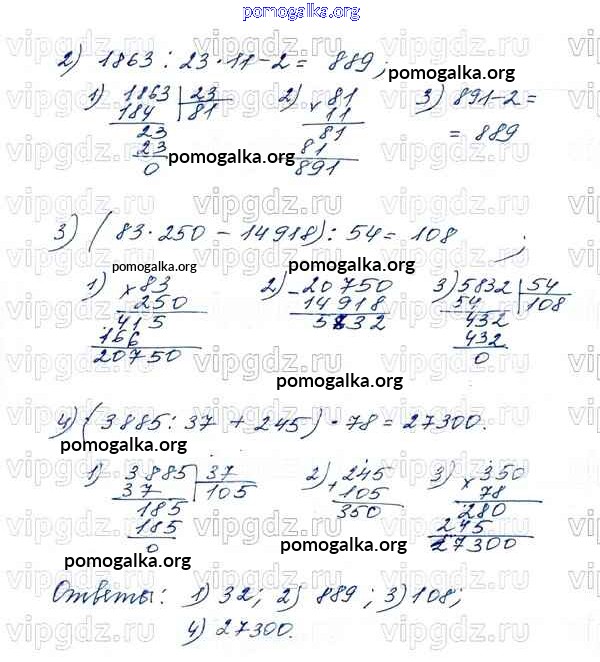 pomogalka.org
2) 1863 : 23 · 11 - 2 = 889;
pomogalka.org
1) 1863 | 23 2) × 81 3) 891 - 2 =
184 81 11 = 889
23 81
23 81
0 891
pomogalka.org
3) ( 83 · 250 - 14918) : 54 = 108 ;
pomogalka.org
pomogalka.org
1) × 83 2) - 20750 3) 5832 | 54
250 14918 54 108
415 5832 432
166 432
20750 0
pomogalka.org
4) (3885 : 37 + 245) · 78 = 27300.
pomogalka.org
1) 3885 | 37 2) + 245 3) × 350
37 105 105 78
185 350 280
185 245
0 27300
pomogalka.org
pomogalka.org
Ответы: 1) 32; 2) 889; 3) 108;
4) 27300.
vipgdz.ru